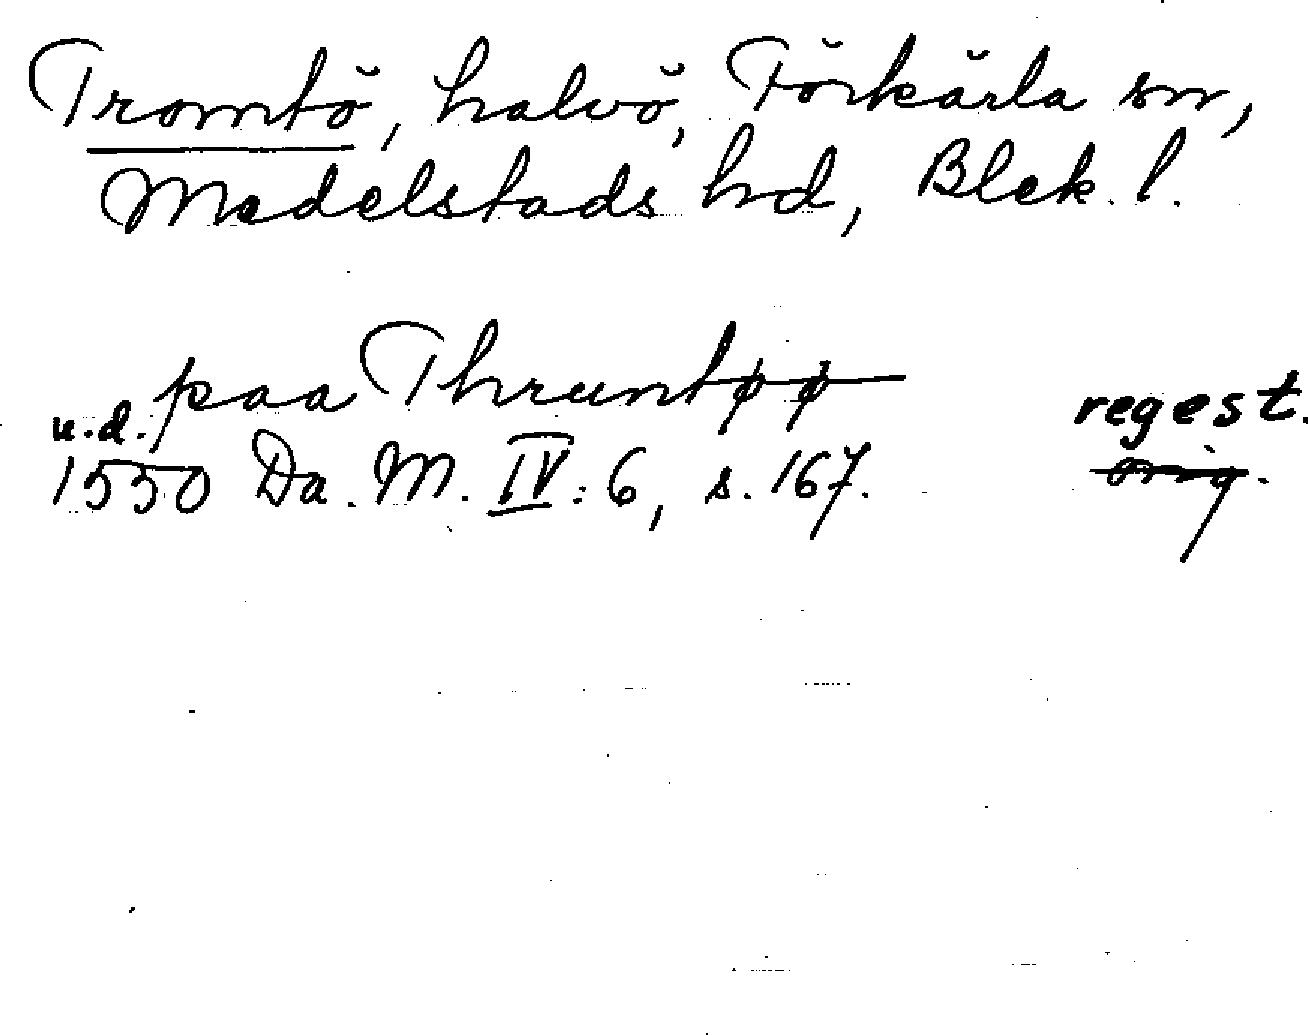 Tromtö, halvö, Förkärla sn,
Medelstads hd, Blek. l.
paa Thruntøø
u.d. regest.
1550 Da. M. IV: 6, s. 167. orig.